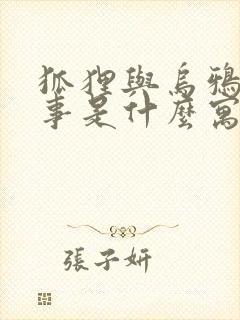 狐狸與烏鴉
事是什麼寓
張子妍